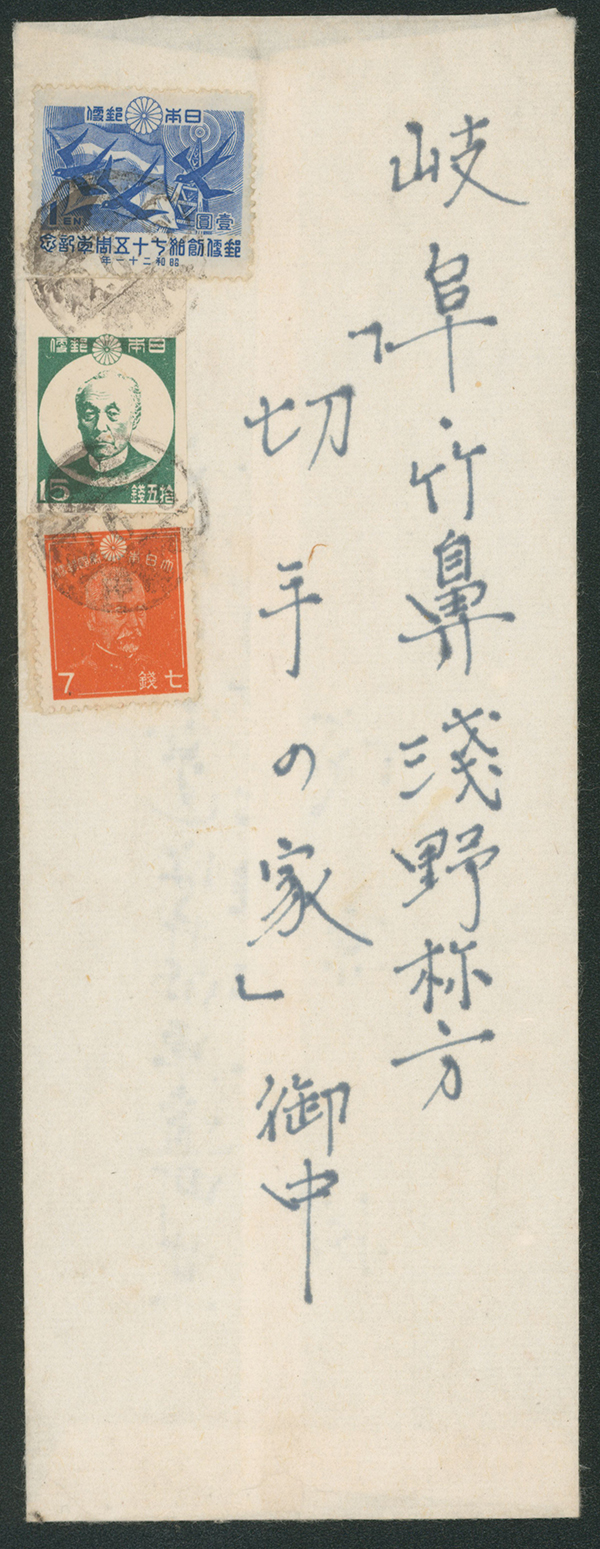 岐阜・竹鼻浅野祢方
「切手の家」御中
日本郵便
1 YEN
壹圓
郵便創始七十五周年記念
昭和二十一年
日本郵便
15
拾五錢
大日本帝國郵便
7
七錢